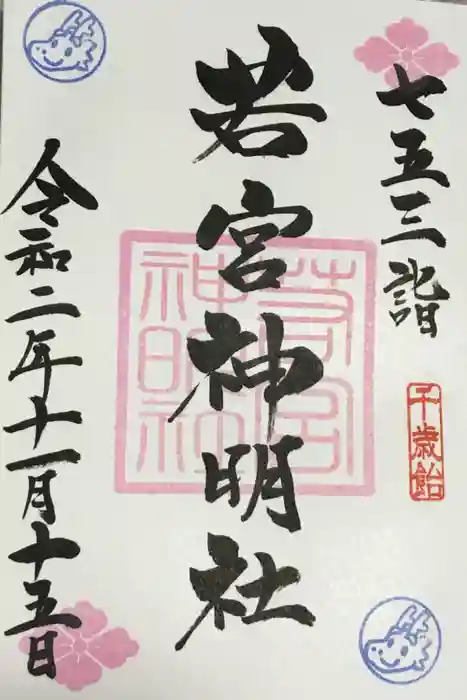 七五三詣
千歳飴
若宮神明社
若宮
神明社
令和二年十一月十五日